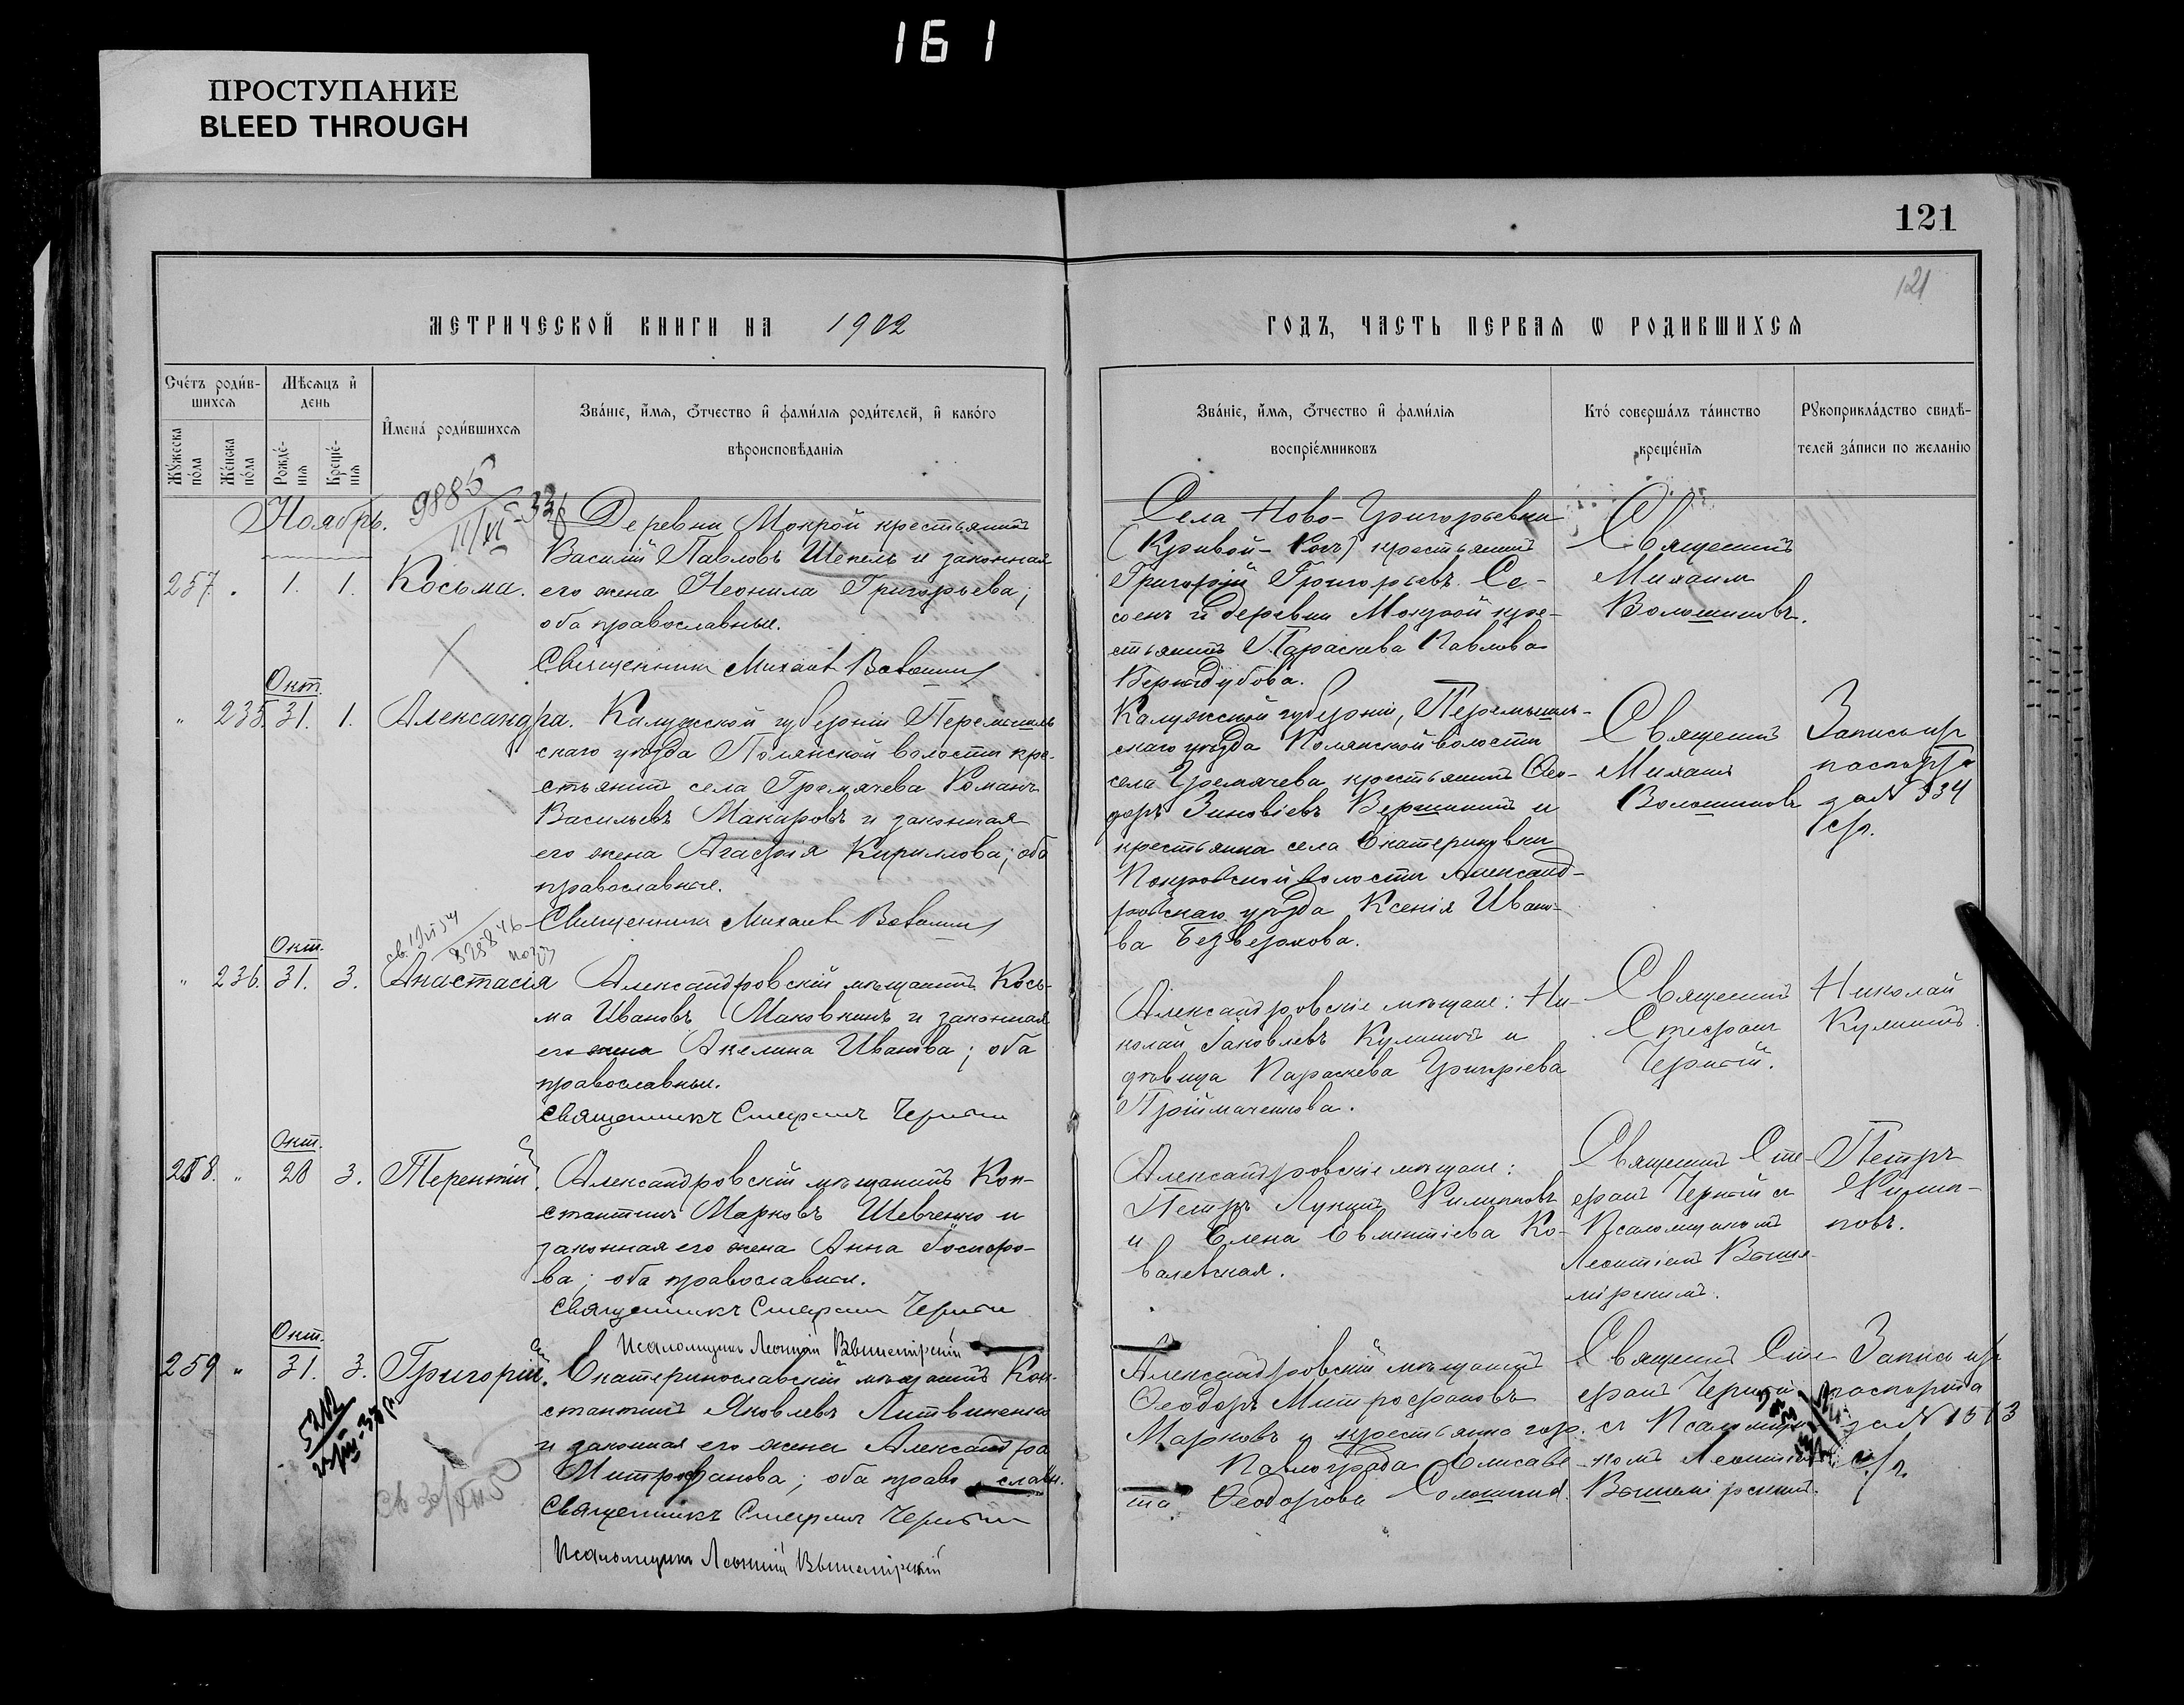 161
ПРОСТУПАНИЕ
BLEED THROUGH
121
121
МЕТРИЧЕСКОЙ КНИГИ НА 1902
ГОДЪ, ЧАСТЬ ПЕРВАЯ Ѡ РОДИВШИХСЯ
Счетъ родив-
шихся
Мужеска
пола
Женска
пола
Мѣсяцъ и
день
Рожде-
нія
Креще-
нія
Имена родившихся
Званіе, имя, отчество и фамилія родителей, и какого
вѣроисповѣданія
Званіе, имя, отчество и фамилія
воспріемниковъ
Кто совершалъ таинство
крещенія
Рукоприкладство свидѣ-
телей записи по желанію
Ноябрь.
9885
257 " 1. 1. Косьма.
Деревни Мокрой крестьянинъ
Василій Павловъ Шепель и законная
его жена Неонила Григорьева;
оба православные.
Священникъ Михаил
Села Ново-Григорьевки
(Кривой-Рогъ) крестьянинъ
Григорій Григорьевъ Се-
и деревни Мокрой кре-
Параскева Павлова
Вернидубова.
Священникъ
Михаилъ
Волошиновъ.
Окт.
" 235. 31. 1. Александра.
Калужской губерніи Перемышль-
скаго уѣзда Полянской волости кре-
стьянинъ села Гремячева Романъ
Васильевъ Макаровъ и законная
его жена Агафія Кириллова; оба
православные.
Священникъ Михаил
Калужской губерніи, Перемышль-
скаго уѣзда Полянской волости
села Гремячева крестьянинъ Ѳео-
доръ Зиновіевъ Вершининъ и
крестьянка села Екатериновки
Покровской волости Александ-
ровскаго уѣзда Ксенія Ивано-
ва Безверхова.
Священникъ
Михаилъ
Волошиновъ
Запись изъ
паспорта
за № 334
Окт.
" 236. 31. 3. Анастасія
Александровскій мѣщанинъ Кось-
ма Ивановъ Маковкинъ и законная
его жена Акелина Иванова; оба
православные.
Священникъ Стефанъ Черный
Александровскіе мѣщане: Ни-
колай Яковлевъ Кулишъ и
дѣвица Параскева Григорьева
Пріймаченкова.
Священникъ
Стефанъ
Черный.
Николай
Кулишъ.
Окт.
258. " 28 3. Терентій.
Александровскій мѣщанинъ Кон-
стантинъ Марковъ Шевченко и
законная его жена Анна Іосифо-
ва; оба православные.
Священникъ Стефанъ Черный
Псаломщикъ Леонтій Вышемірскій
Александровскіе мѣщане:
Петръ Лукинъ Филиповъ
и Елена Евментіева Ко-
валевская.
Священникъ Сте-
фанъ Черный съ
Псаломщикомъ
Леонтіемъ Выше-
мірскимъ.
Петръ
Филип-
повъ.
Окт.
259 " 31. 3. Григорій.
Екатеринославскій мѣщанинъ Кон-
стантинъ Яковлевъ Литвиненко
и законная его жена Александра
Митрофанова; оба православн.
Священникъ Стефанъ Черный
Псаломщикъ Леонтій Вышемірскій
Александровскій мѣщанинъ
Ѳеодоръ Митрофановъ
Марковъ и крестьянка гор.
Павлограда Елисаве-
та Ѳеодорова
Священникъ Сте-
фанъ Черный
съ Псаломщи-
комъ Леонтіемъ
Вышемірскимъ.
Запись изъ
паспорта
за № 1513